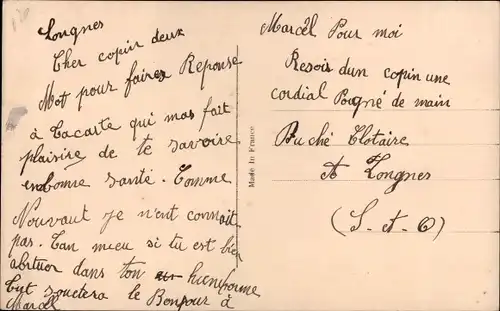 Longnes
Cher copin deux
Mot pour faire Reponse
à ta carte qui mas fait
plaisire de te savoire
en bonne santé. Comme
Nouvaut je n'ent connait
pas. Tan mieu si tu est bien
abituer dans ton
tut souetera le Bonjour à
Marcel
Made in France
Marcel Pour moi
Resois dun copin une
cordial Pogné de main
Buché Clotaire
A Longnes
(S-et-O)